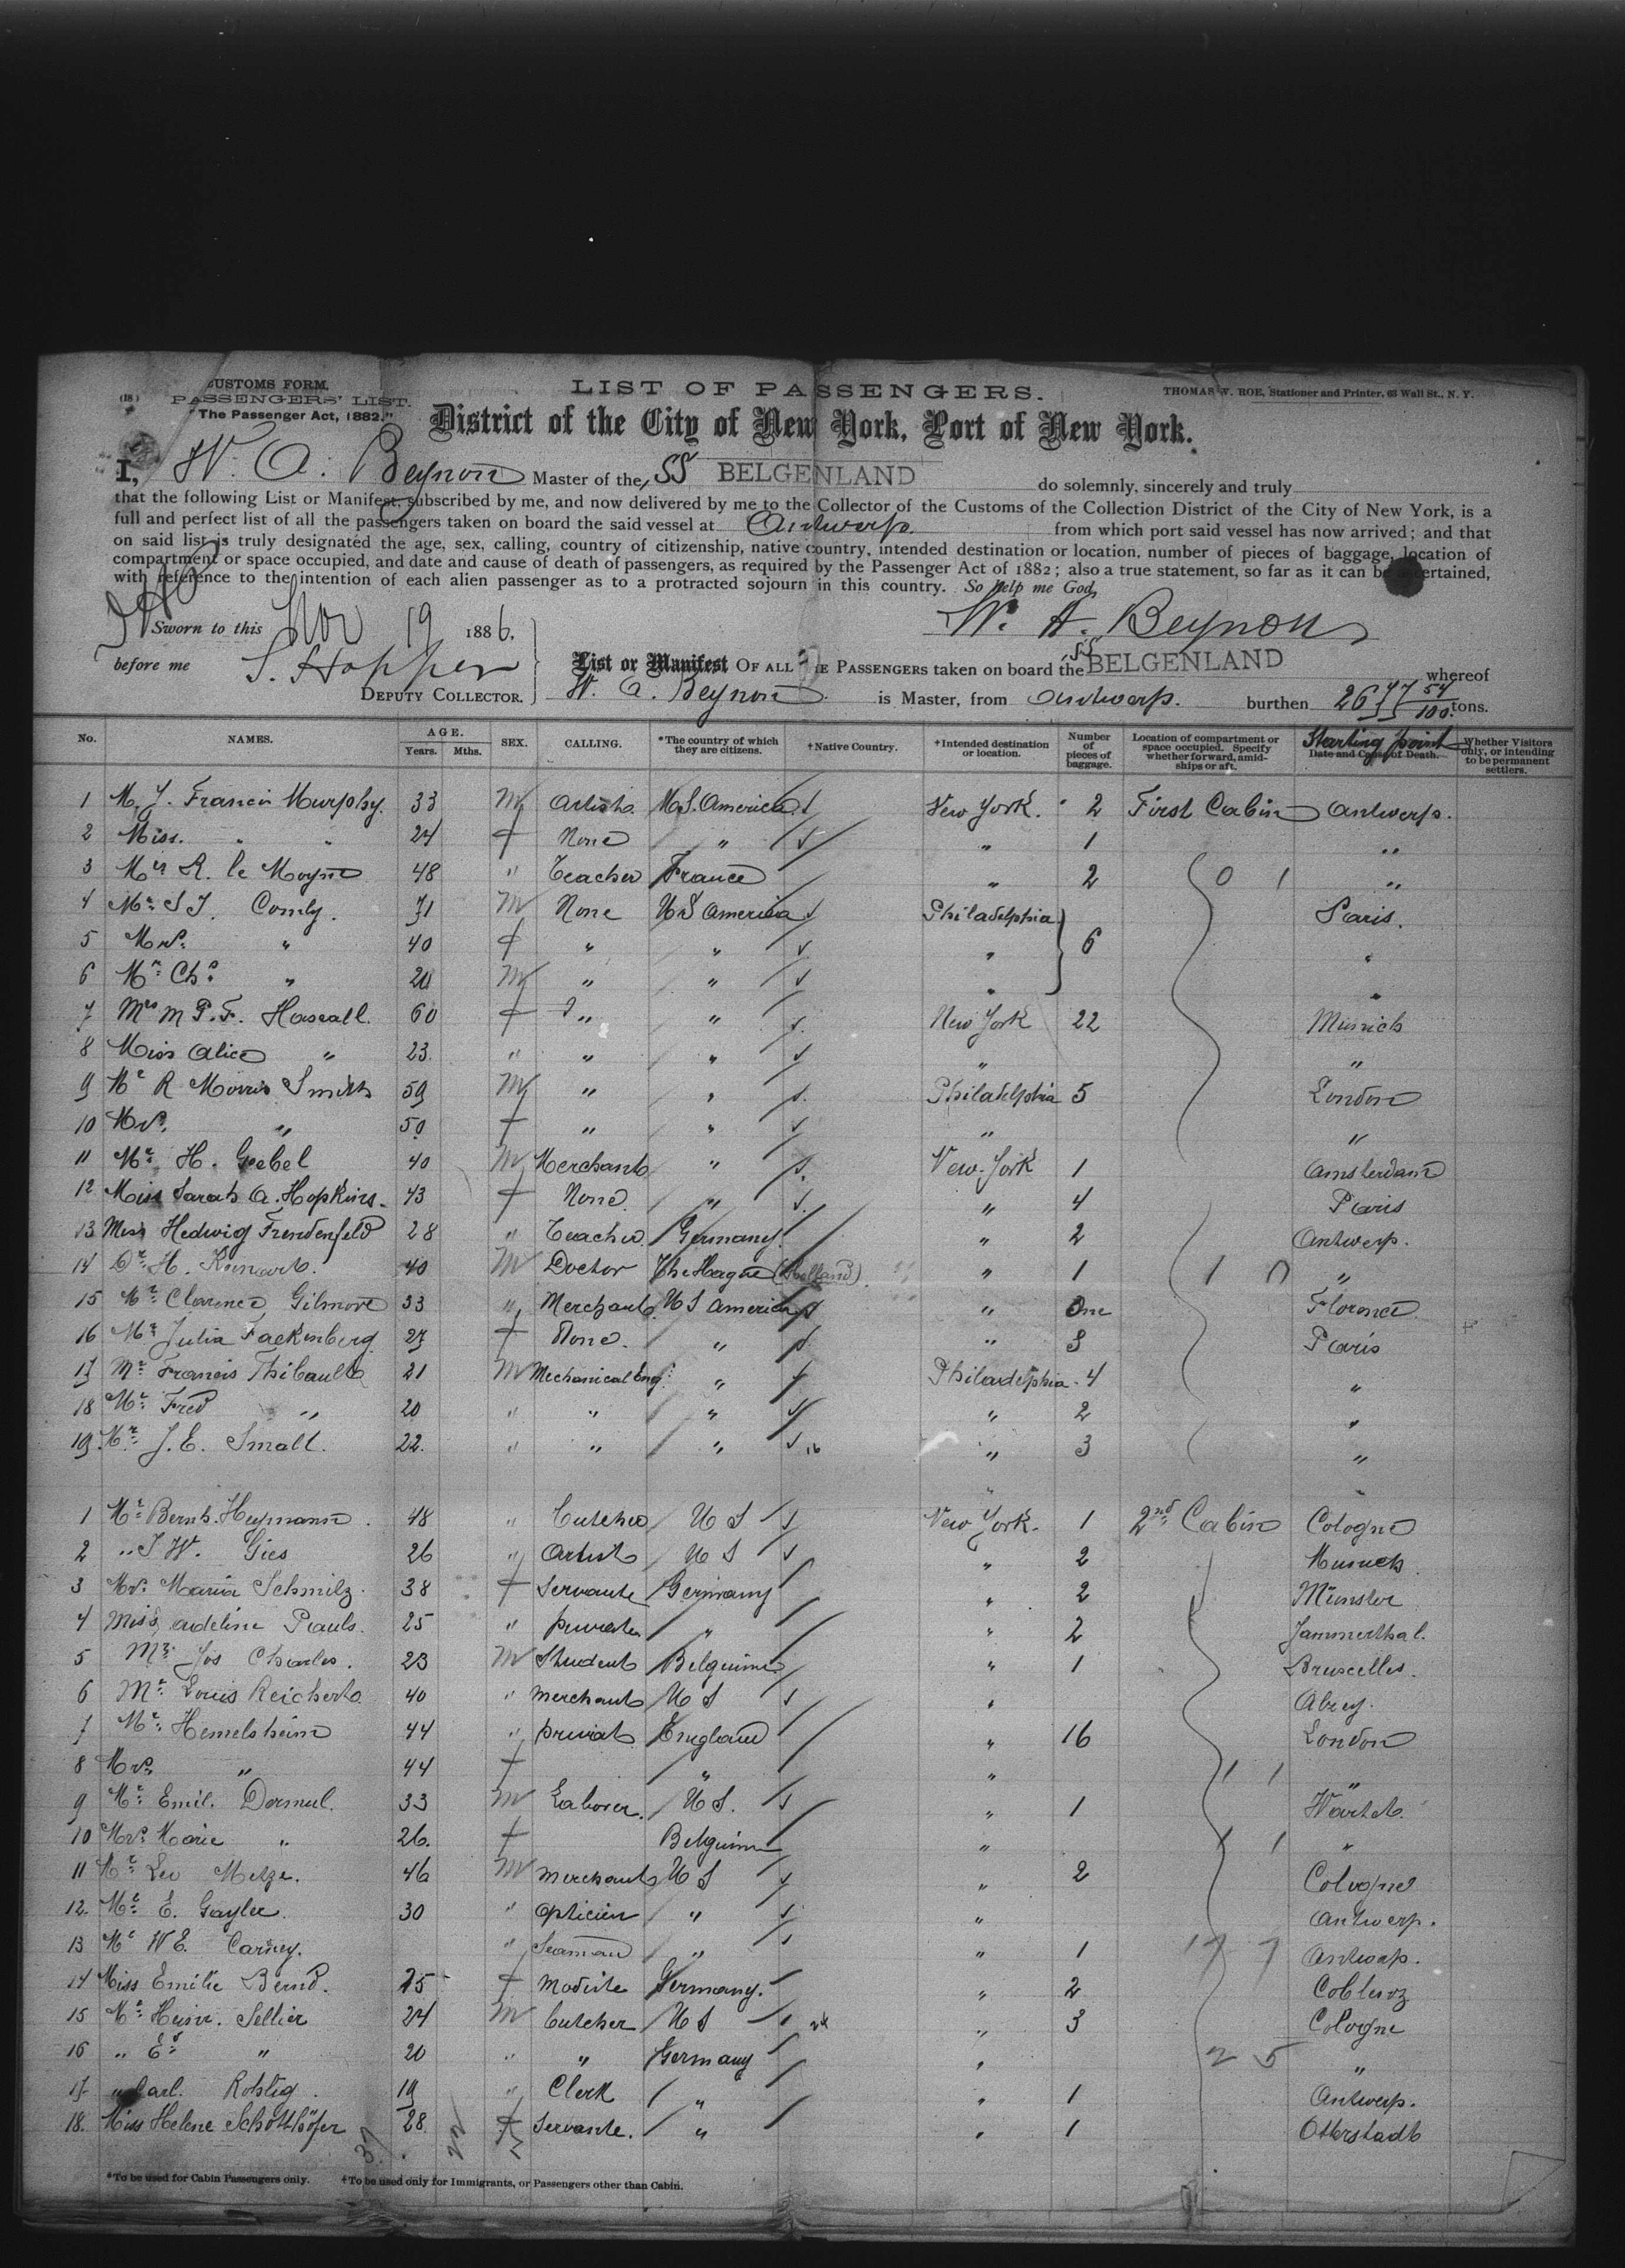 (18)
CUSTOMS FORM.
PASSENGERS' LIST.
"The Passenger Act, 1882."
LIST OF PASSENGERS.
THOMAS W. ROE, Stationer and Printer, 63 Wall St., N. Y.
District of the City of New York, Port of New York.
I, W. A. Beynon Master of the SS BELGENLAND do solemnly, sincerely and truly
that the following List or Manifest, subscribed by me, and now delivered by me to the Collector of the Customs of the Collection District of the City of New York, is a
full and perfect list of all the passengers taken on board the said vessel at Antwerp. from which port said vessel has now arrived; and that
on said list is truly designated the age, sex, calling, country of citizenship, native country, intended destination or location, number of pieces of baggage, location of
compartment or space occupied, and date and cause of death of passengers, as required by the Passenger Act of 1882; also a true statement, so far as it can be ascertained,
with reference to the intention of each alien passenger as to a protracted sojourn in this country. So help me God,
Sworn to this Nov 19 1886.
W. A. Beynon
before me S. Hopper
DEPUTY COLLECTOR.
List or Manifest OF ALL THE PASSENGERS taken on board the SS BELGENLAND whereof
W. A. Beynon is Master, from Antwerp. burthen 54/100 tons.
No. NAMES. AGE. Years. Mths. SEX. CALLING. *The country of which they are citizens. †Native Country. †Intended destination or location. Number of pieces of baggage. Location of compartment or space occupied. Specify whether forward, amidships or aft. Starting point Date and Cause of Death. Whether Visitors only, or intending to be permanent settlers.
1 M. J. Francis Murphy. 33 M Artist U.S. America New York. 2 First Cabin Antwerp.
2 Miss. " " 24 f None " " 1 "
3 Mrs R. le Moyne 48 " Teacher France " 2 0 1 "
4 Mr S J. Comly. 71 M None U S America Philadelphia Paris.
5 Mrs. " 40 f " " " 6 "
6 Mr Chs " 20 M " " " "
7 Mrs M P. F. Hascall. 60 f " " New York 22 Munich
8 Miss Alice " 23. " " " " "
9 Mr R Morris Smith 59 M " " Philadelphia 5 London
10 Mrs. " 50 f " " " "
11 Mr H. Goebel 40 M Merchant " New York 1 Amsterdam
12 Miss Sarah A. Hopkins. 43 f None " " 4 Paris
13 Miss Hedwig Freudenfeld 28 " Teacher Germany " 2 Antwerp.
14 Dr H. 40 M Doctor The Hague (Holland) " 1 1 0 "
15 Mr Clarence Gilmore 33 " Merchant U S America " One Florence
16 Julia Fackenberg 27 f None. " " 3 Paris
17 Mr Francis Thibault 21 M Mechanical Eng. " Philadelphia 4 "
18 Mr Fred " 20 " " " " 2 "
19 Mr J. E. Small. 22. " " " 16 " 3 "
1 Mr Bernh. Heymann 48 " Butcher U S New York. 1 2nd Cabin Cologne
2 " J W. Gies 26 " Artist U S " 2 Munich
3 Mrs Maria Schmilz 38 f Servante Germany " 2 Münster
4 Miss Adeline Pauls. 25 " private " " 2 Jammerthal.
5 Mr Jos Charles. 23 M Student Belguime " 1 Bruxelles.
6 Mr Louis Reichert 40 " Merchant U S "
7 Mr Hemelsheim 44 " privat England " 16 London
8 Mrs " 44 f " " 1 1 "
9 Mr Emil. Dermul. 33 M Laborer. U S. " 1
10 Mrs Marie " 26. f Belguime " 1 1 "
11 Mr Leo Metze. 46 M Merchant U S " 2 Cologne
12. Mr E. Gaylee 30 " Opticien " " Antwerp.
13 Mr W E. Carney. " Seaman " " 1 17 7 Antwerp.
14 Miss Emilie Bernd. 25 f Modiste Germany. " 2 Coblenz
15 Mr Heinr. Sellier 24 M Butcher U S 24 " 3 Cologne
16 " Ed " 20 " " Germany " 2 5 "
17 " Carl. Rohlig. 19 " Clerk " " 1 Antwerp.
18. Miss Helene Schotthöfer 28 f Servante. " " 1 Otterstadt
37 22
*To be used for Cabin Passengers only. †To be used only for Immigrants, or Passengers other than Cabin.